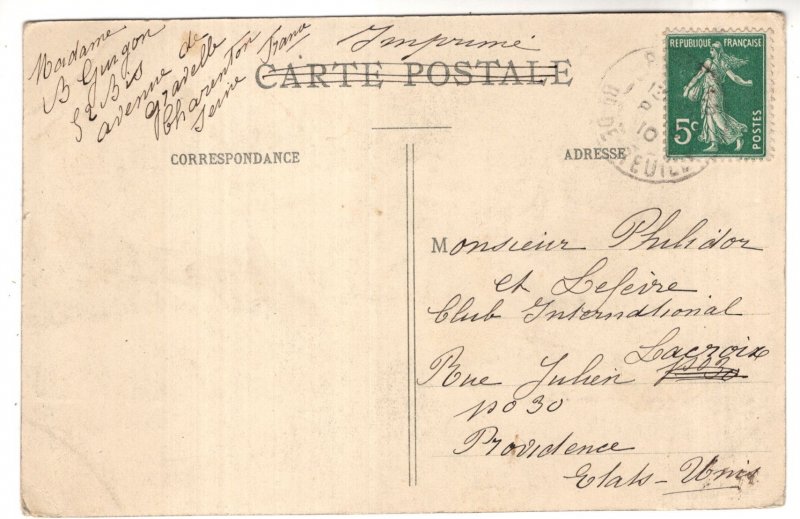 Madame
B Gurgon
52 Bis
avenue de
Gravelle
Charenton
Seine France
Imprimé
CARTE POSTALE
CORRESPONDANCE
ADRESSE
REPUBLIQUE FRANÇAISE
5c
POSTES
10
Monsieur Philidor
et Lefeivre
Club International
Lacroix
Rue Julien
no 30
Providence
Etats-Unis